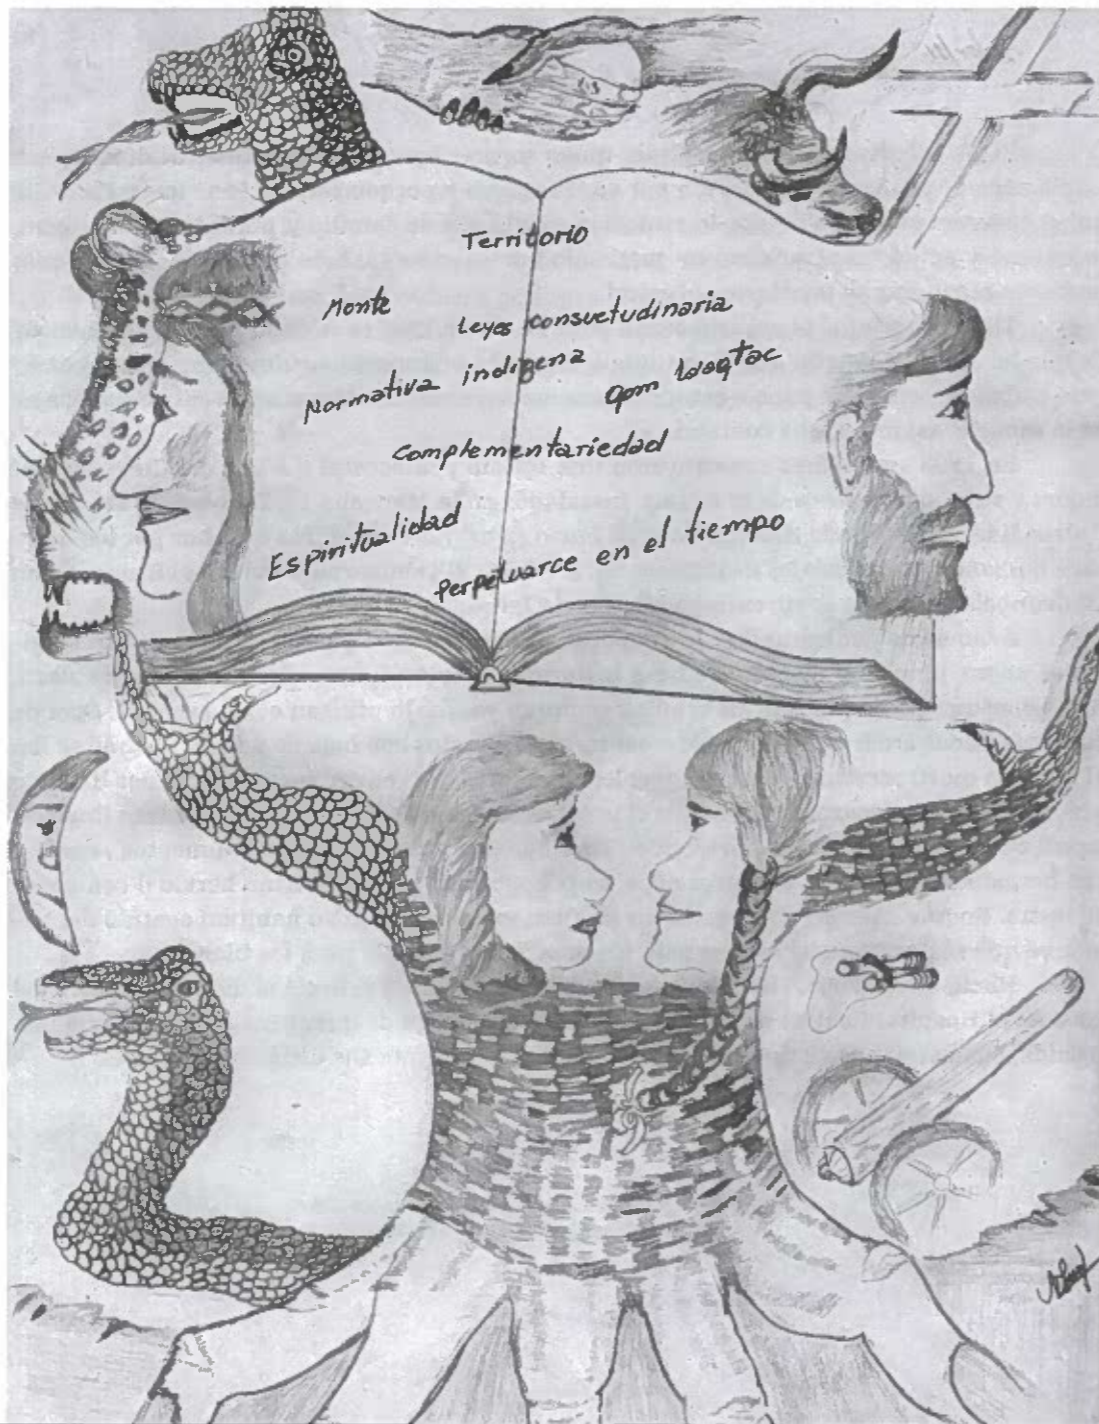 Territorio
Monte
Leyes consuetudinaria
Normativa indigena
qom laaqtac
Complementariedad
Espiritualidad
perpetuarce en el tiempo